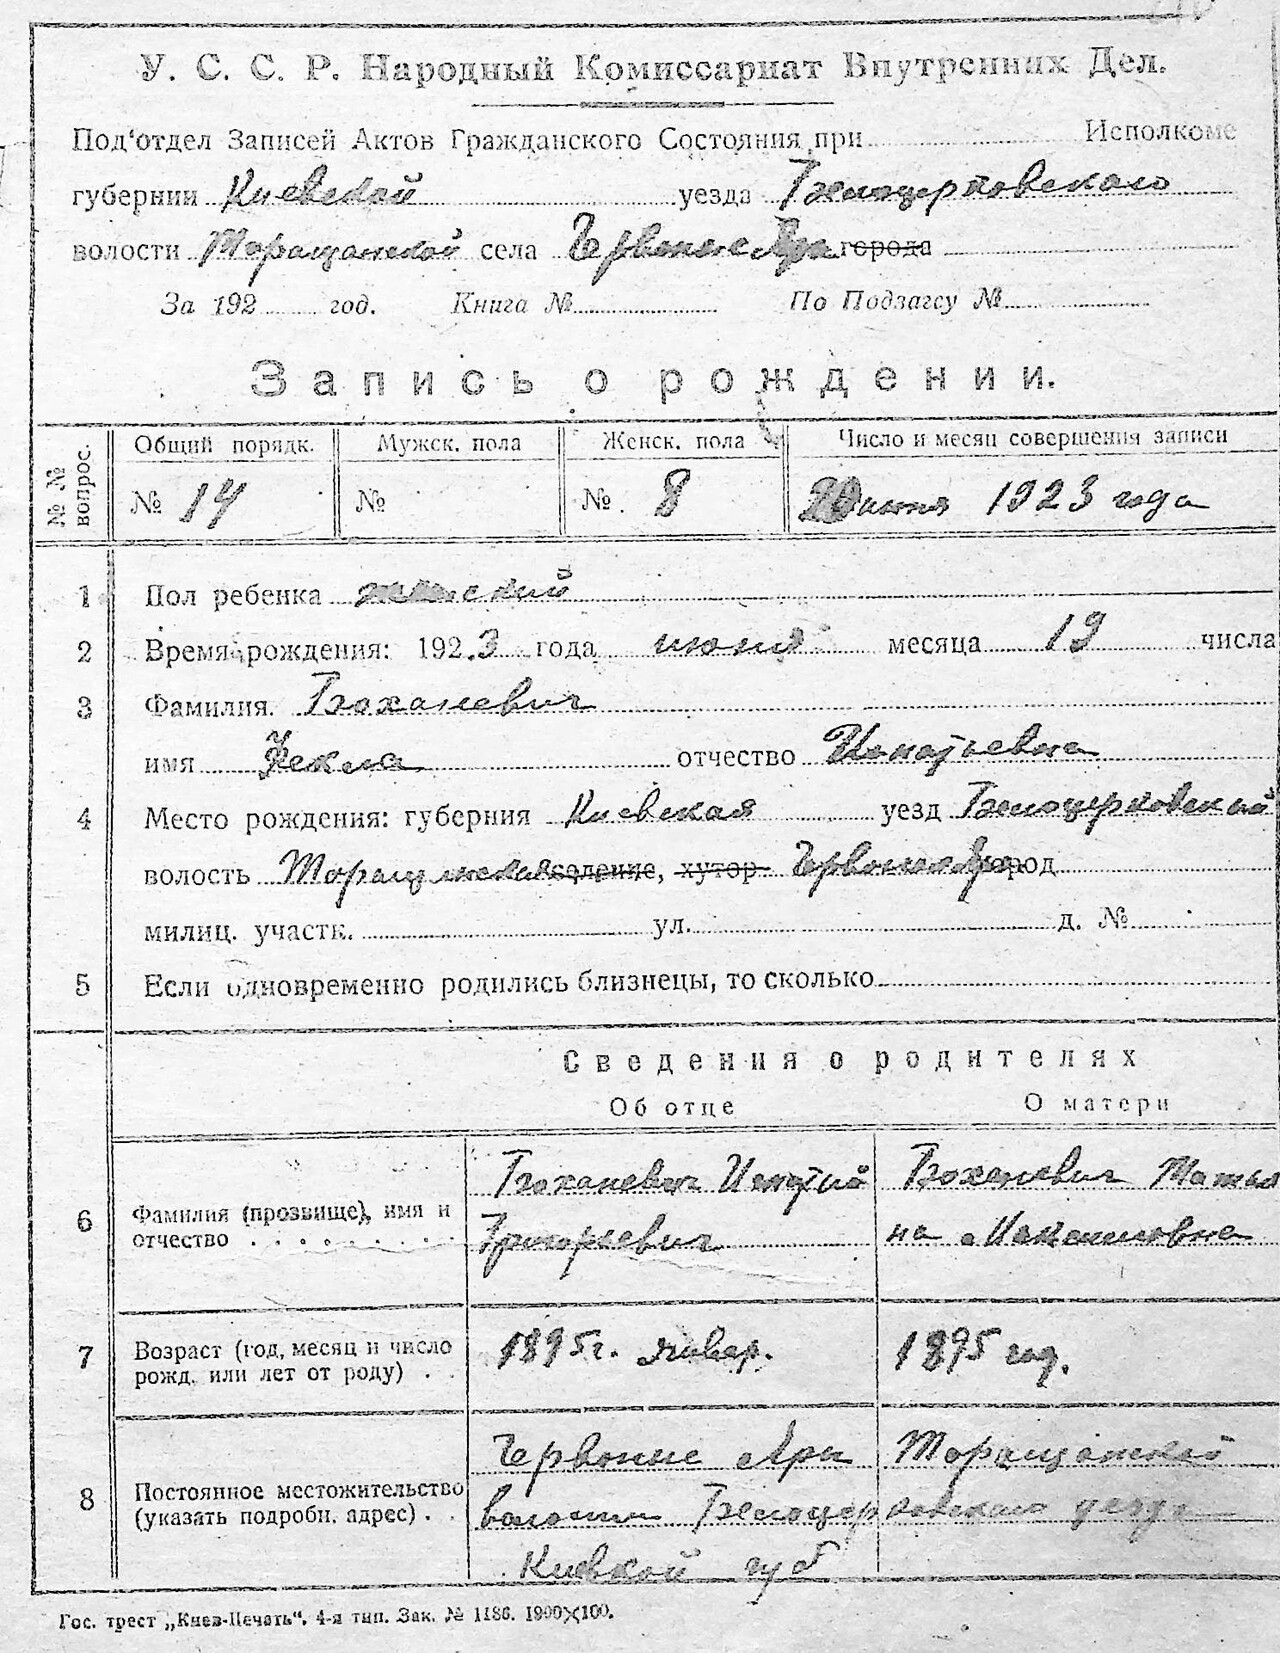 У. С. С. Р. Народный Комиссариат Внутренних Дел.
Под‘отдел Записей Актов Гражданского Состояния при Исполкоме
губернии Киевской уезда Белоцерковского
волости Таращанской села Червоные Яры города
За 192 год. Книга № По Подзагсу №
Запись о рождении.
№ № вопрос. Общий порядк. Мужск. пола Женск. пола Число и месяц совершения записи
№ 14 № № 8 20 июня 1923 года
1 Пол ребенка женский
2 Время рождения: 192.3 года июня месяца 19 числа
3 Фамилия. Боханевич
имя Фекла отчество Игнатьевна
4 Место рождения: губерния Киевская уезд Белоцерковский
волость Таращанская селение, хутор Червоные Яры город
милиц. участк. ул. д. №
5 Если одновременно родились близнецы, то сколько
Сведения о родителях
Об отце О матери
6 Фамилия (прозвище), имя и отчество
Боханевич Игнатий
Григорьевич
Боханевич Татья
на Максимовна
7 Возраст (год, месяц и число рожд. или лет от роду)
1895 г. январ. 1895 год.
8 Постоянное местожительство (указать подробн. адрес)
Червоные Яры Таращанской
волости Белоцерковского уезда
Киевской губ
Гос. трест „Киев-Печать“, 4-я тип. Зак. № 1186. 1900×100.